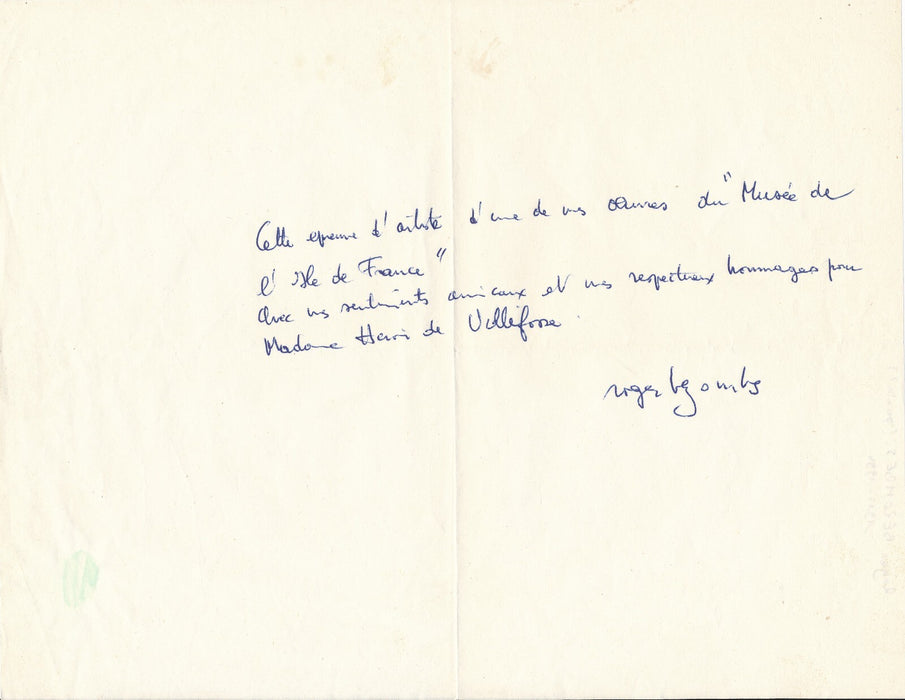 Cette épreuve d'artiste d'une de mes œuvres du "Musée de
l'Ile de France"
Avec mes sentiments amicaux et mes respectueux hommages pour
Madame Henri de Villefosse.
roger bezombes